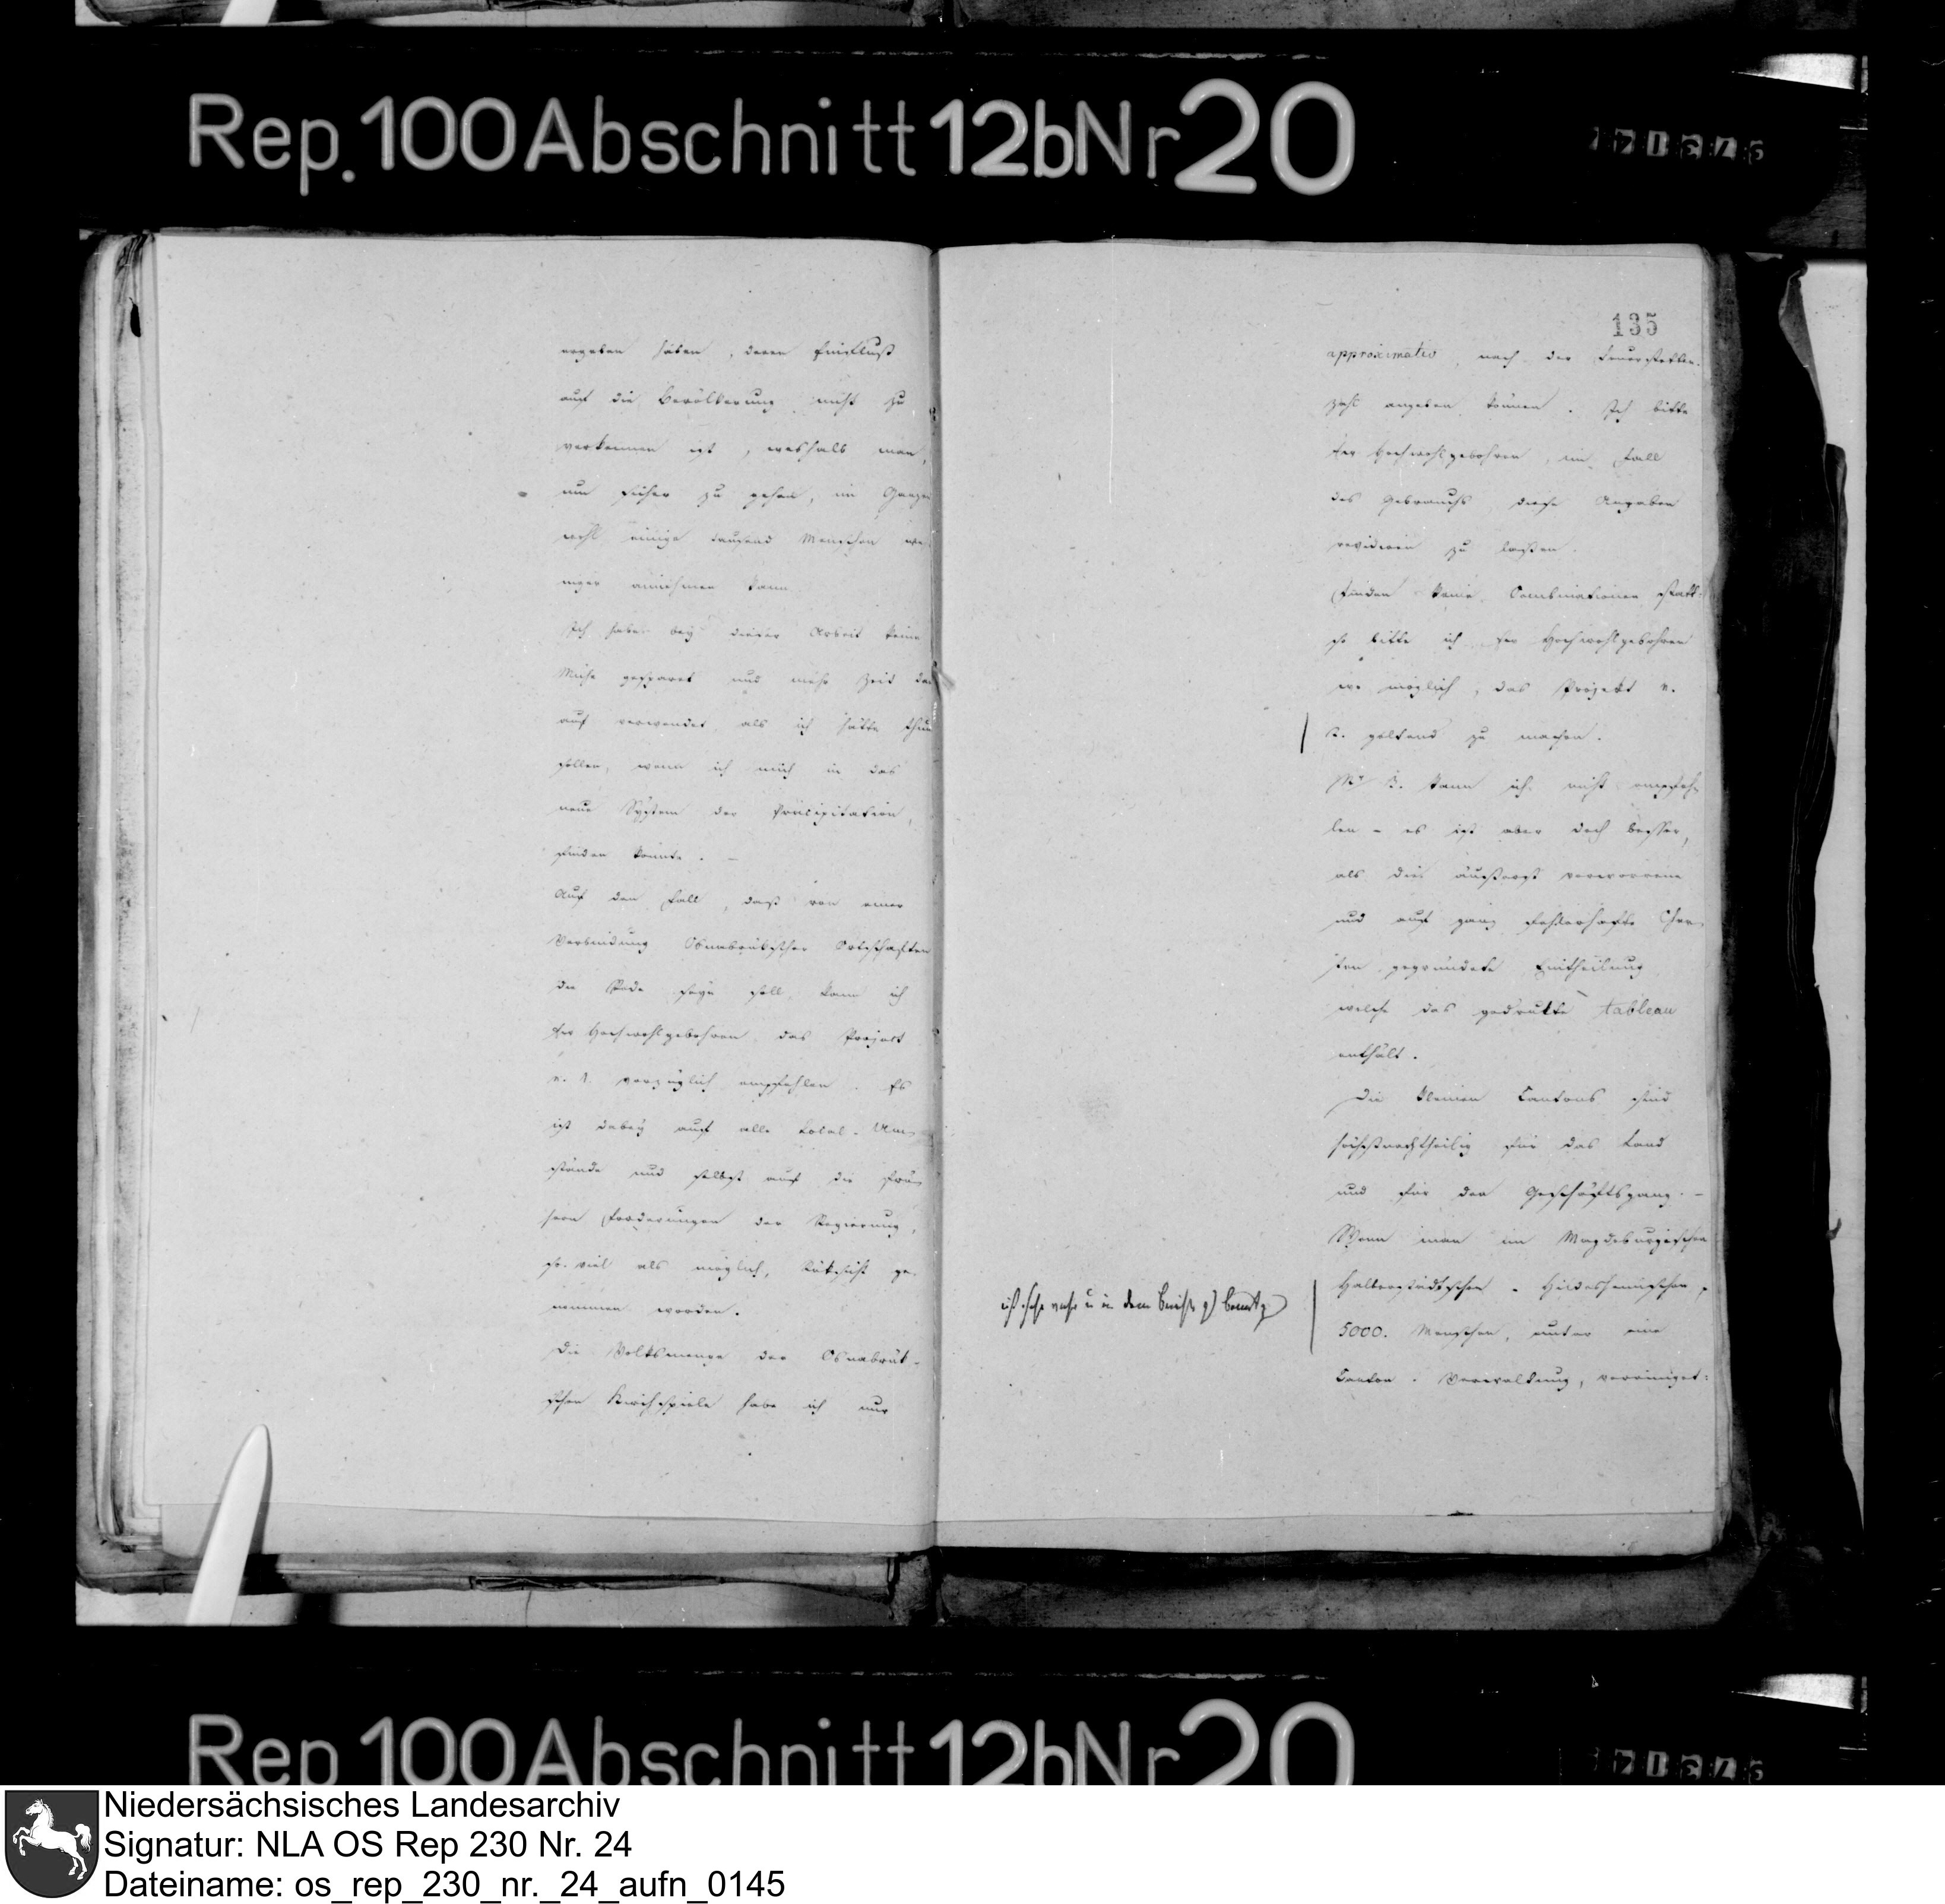 Rep. 100 Abschnitt 12b Nr 20
ergeben haben, deren Einfluß
auf die Bevölkerung nicht zu
verkennen ist, weshalb man,
um sicher zu gehen, im Ganzen
wohl einige tausend Menschen we-
niger annehmen kann.
Ich habe bey dieser Arbeit keine
Mühe gesparet und mehr Zeit dar
auf verwendet, als ich hätte thun
sollen, wenn ich mich in das
neue System der Präcipitation,
finden könnte. –
Auf den Fall, daß von einer
Verbindung Osnabrükscher Ortschaften
die Rede seyn soll, kann ich
Ew Hochwohlgebohren das Projekt
n. A. vorzüglich empfehlen. Es
ist dabey auf alle Lokal-Um-
stände und selbst auf die frü-
hern Forderungen der Regierung,
so viel als möglich, Rüksicht ge-
nommen worden.
Die Volksmenge der Osnabrük-
schen Kirchspiele habe ich nur
135
approximativ, nach der Feuerstellen-
zahl angeben können. Ich bitte
Ew Hochwohlgebohren, im Fall
des Gebrauchs diese Angaben
revidiren zu laßen.
Finden keine Combinationen statt:
so bitte ich Ew Hochwohlgebohren
wo möglich, das Projekt n.
geltend zu machen.
kann ich nicht empfeh-
len – es ist aber doch besser,
als die äußerst verworrene
und auf ganz fehlerhafte
gegründete Eintheilung
welche das gedrukte tableau
enthält.
Die kleinen Cantons sind
höchstnachtheilig für das Land
und für den Geschäftsgang. –
Wenn man im Magdeburgischen
Halberstädtschen - Hildesheimschen,
5000. Menschen, unter eine
Canton-Verwaltung, vereiniget:
ist sehr wahr u in dem
Rep 100 Abschnitt 12b Nr 20
Niedersächsisches Landesarchiv
Signatur: NLA OS Rep 230 Nr. 24
Dateiname: os_rep_230_nr._24_aufn_0145